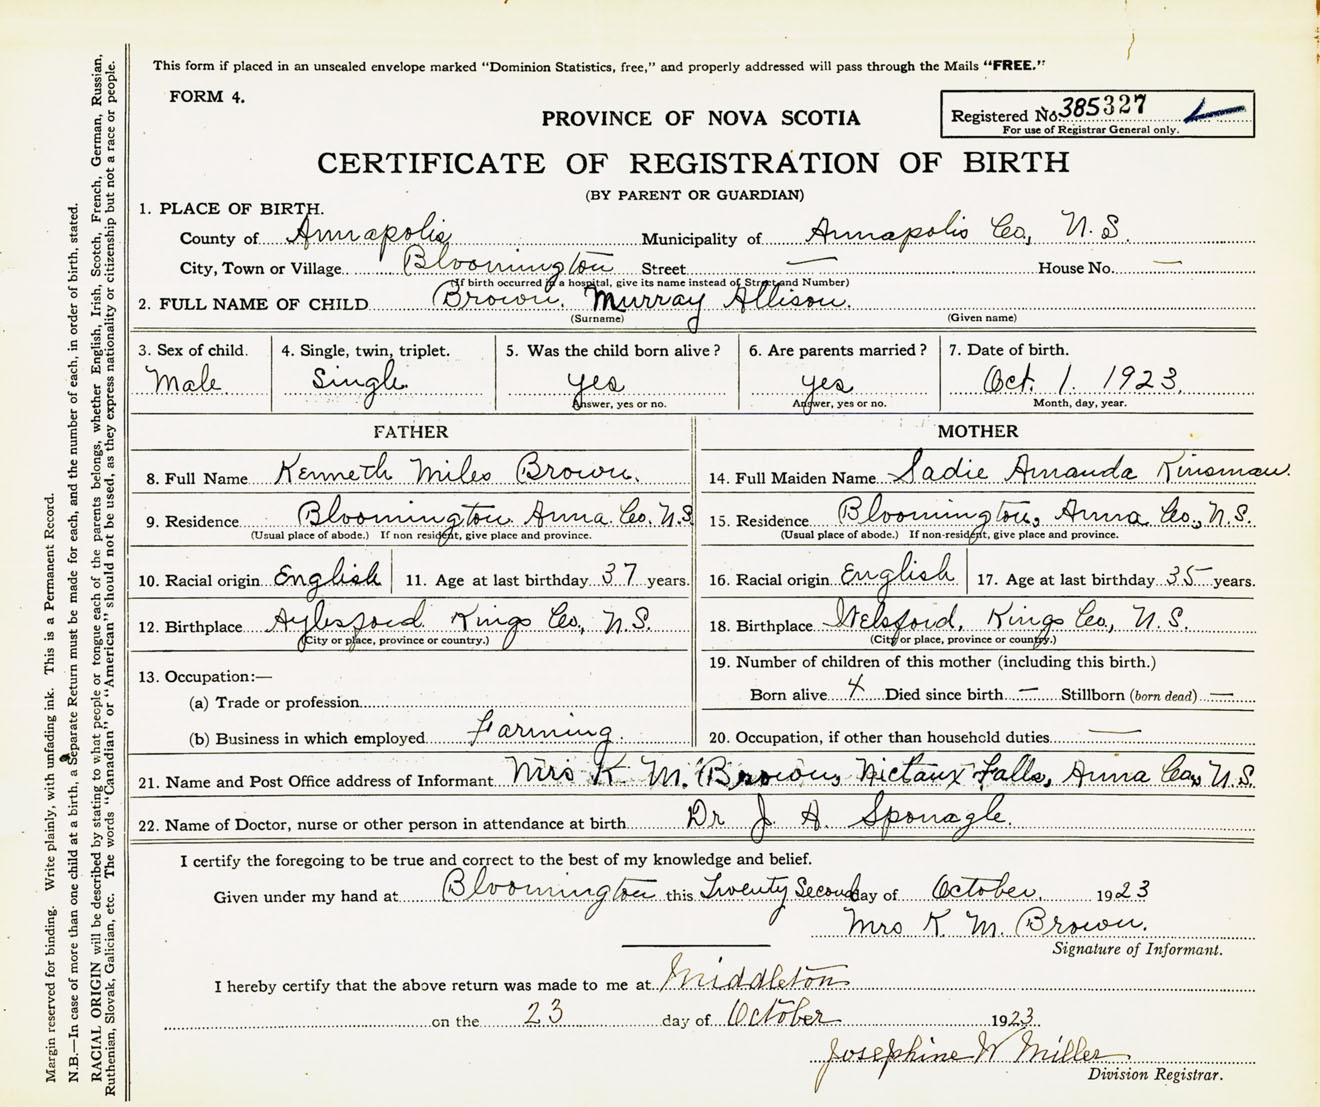 This form if placed in an unsealed envelope marked "Dominion Statistics, free," and properly addressed will pass through the Mails "FREE."
FORM 4.
PROVINCE OF NOVA SCOTIA
Registered No. 385327
For use of Registrar General only.
CERTIFICATE OF REGISTRATION OF BIRTH
(BY PARENT OR GUARDIAN)
1. PLACE OF BIRTH.
County of Annapolis Municipality of Annapolis Co., N.S.
City, Town or Village Bloomington Street — House No. —
(If birth occurred in a hospital, give its name instead of Street and Number)
2. FULL NAME OF CHILD Brown, Murray Allison.
(Surname) (Given name)
3. Sex of child. 4. Single, twin, triplet. 5. Was the child born alive? 6. Are parents married? 7. Date of birth.
Male Single yes yes Oct. 1. 1923.
Answer, yes or no. Answer, yes or no. Month, day, year.
FATHER MOTHER
8. Full Name Kenneth Miles Brown. 14. Full Maiden Name Sadie Amanda Kinsman.
9. Residence Bloomington Anna. Co. N.S. 15. Residence Bloomington, Anna Co., N.S.
(Usual place of abode.) If non resident, give place and province. (Usual place of abode.) If non-resident, give place and province.
10. Racial origin English 11. Age at last birthday 37 years. 16. Racial origin English 17. Age at last birthday 35 years.
12. Birthplace Aylesford Kings Co., N.S. 18. Birthplace Welsford, Kings Co., N.S.
(City or place, province or country.) (City or place, province or country.)
13. Occupation:— 19. Number of children of this mother (including this birth.)
(a) Trade or profession Born alive 4 Died since birth — Stillborn (born dead) —
(b) Business in which employed Farming. 20. Occupation, if other than household duties —
21. Name and Post Office address of Informant Mrs K. M. Brown, Nictaux Falls, Anna Co., N.S.
22. Name of Doctor, nurse or other person in attendance at birth Dr J. A. Sponagle.
I certify the foregoing to be true and correct to the best of my knowledge and belief.
Given under my hand at Bloomington this Twenty Second day of October, 1923
Mrs K. M. Brown.
Signature of Informant.
I hereby certify that the above return was made to me at Middleton
on the 23 day of October 1923
Josephine W Miller
Division Registrar.
Margin reserved for binding. Write plainly, with unfading ink. This is a Permanent Record.
N.B.—In case of more than one child at a birth, a Separate Return must be made for each, and the number of each, in order of birth, stated.
RACIAL ORIGIN will be described by stating to what people or tongue each of the parents belongs, whether English, Irish, Scotch, French, German, Russian,
Ruthenian, Slovak, Galician, etc. The words "Canadian" or "American" should not be used, as they express nationality or citizenship but not a race or people.